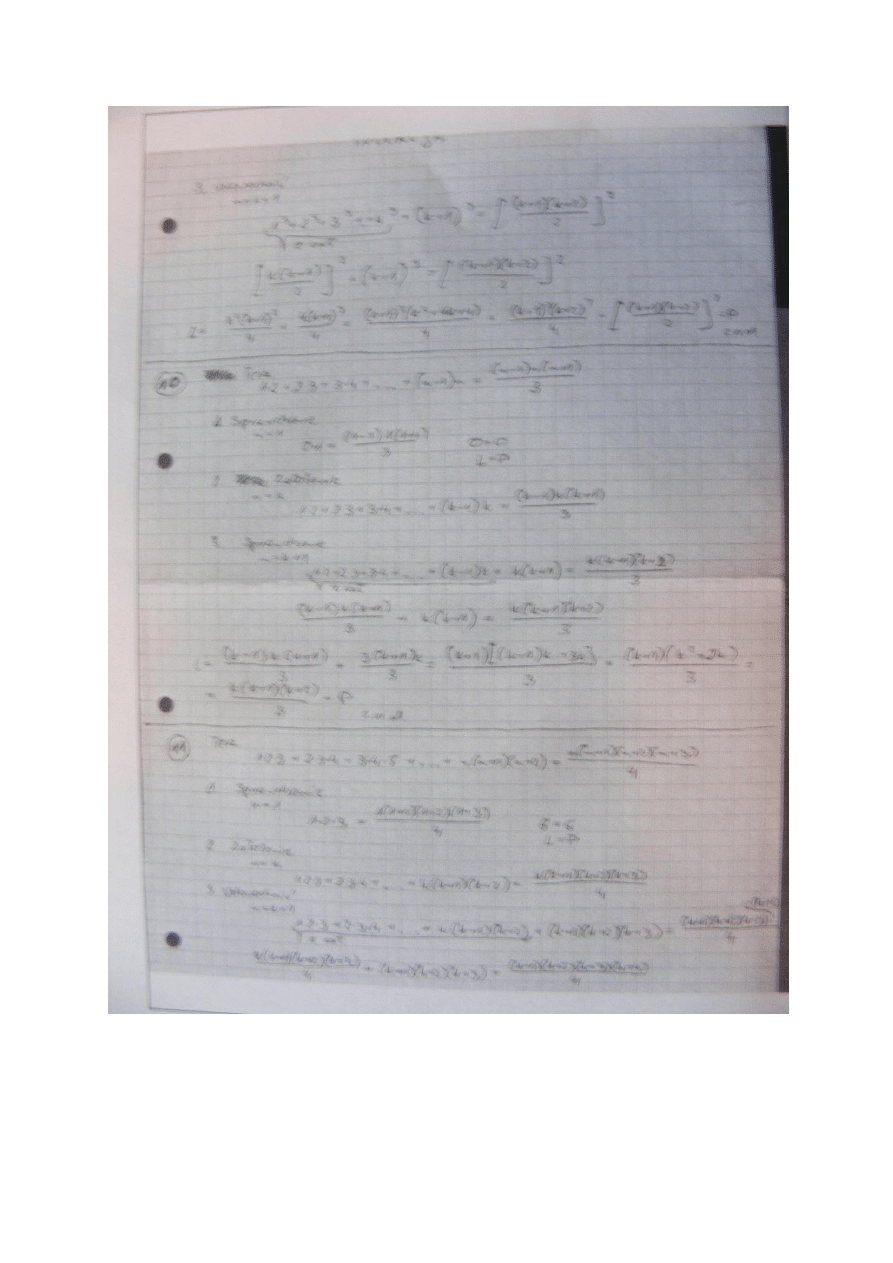 n=k+1
1³+2³+3³+...+k³+(k+1)³=[(k+1)(k+2)/2]²
z zał
[k(k+1)/2]²+(k+1)³=[(k+1)(k+2)/2]²
L= k²(k+1)²/4 + 4(k+1)³/4 = (k+1)²(k²+4k+4)/4 = (k+1)²(k+2)²/4 = [(k+1)(k+2)/2]²=P
c.n.d
10 Teza
1·2+2·3+3·4+...+(n-1)n = (n-1)n(n+1)/3
1. Sprawdzenie
n=1
0·1 = (1-1)·1(1+1)/3 0=0
L=P
2. Założenie
n=k
1·2+2·3+3·4+...+(k-1)k = (k-1)k(k+1)/3
3. Sprawdzenie
n=k+1
1·2+2·3+3·4+...+(k-1)k+k(k+1) = k(k+1)(k+2)/3
z zał
(k-1)k(k+1)/3 + k(k+1) = k(k+1)(k+2)/3
L= (k-1)k(k+1)/3 + 3(k+1)k/3 = (k+1)[(k-1)k+3k]/3 = (k+1)(k²+2k)/3 =
= k(k+1)(k+2)/3 = P
c.n.d
11 Teza
1·2·3+2·3·4+3·4·5+...+n(n+1)(n+2)= n(n+1)(n+2)(n+3)/4
1. Sprawdzenie
n=1
1·2·3 = 1(1+1)(1+2)(1+3)/4 6=6
L=P
2. Założenie
n=k
1·2·3+2·3·4+...+k(k+1)(k+2)= k(k+1)(k+2)(k+3)/4
3.
n=k+1
1·2·3+2·3·4+...+k(k+1)(k+2)+(k+1)(k+2)(k+3)= (k+1)(k+2)(k+3)(k+4)/4
z zał
k(k+1)(k+2)(k+3)/4 + (k+1)(k+2)(k+3)= (k+1)(k+2)(k+3)(k+4)/4